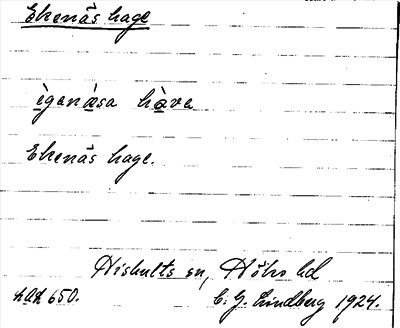 Ekenäs hage
ìgenàsa hàva
Ekenäs hage.
Hishults sn, Höks hd
650. C. G. Lindberg 1924.